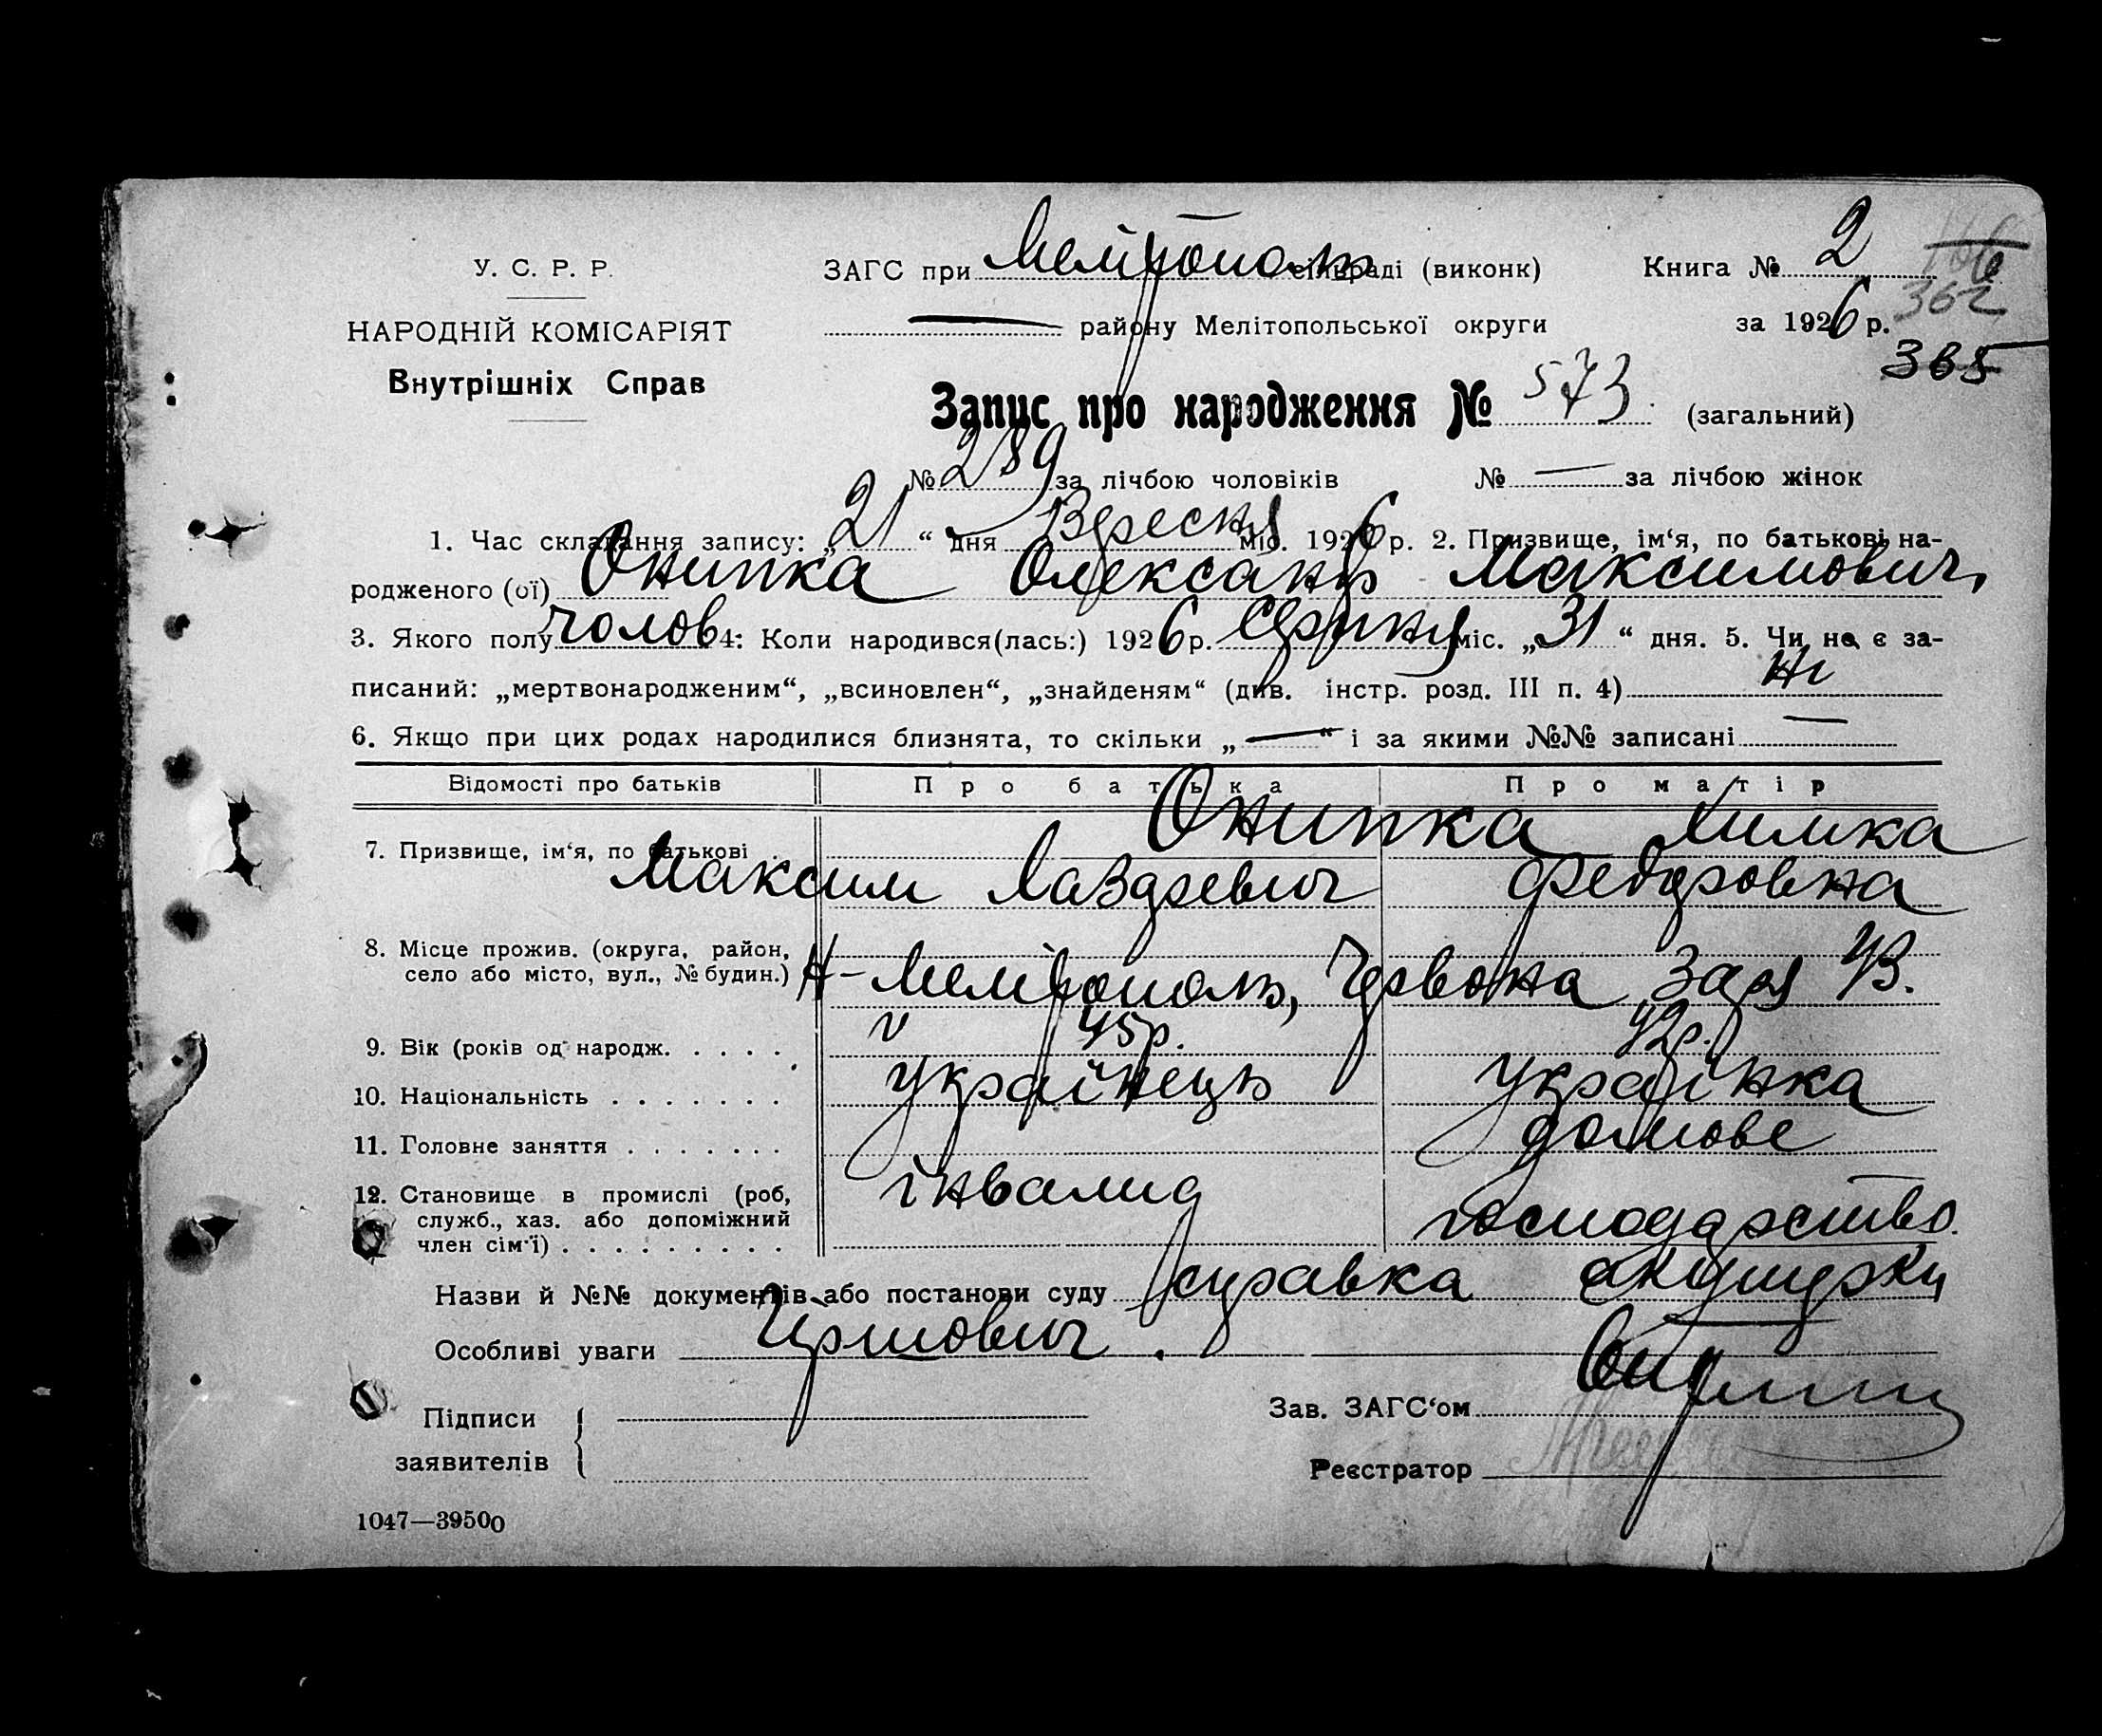 У. С. Р. Р.
НАРОДНІЙ КОМІСАРІЯТ
Внутрішніх Справ
ЗАГС при Мелітополь сільраді (виконк)
— району Мелітопольської округи
Книга № 2
за 1926 р.
362
365
Запис про народження № 573. (загальний)
№ 289 за лічбою чоловіків № — за лічбою жінок
1. Час складання запису: „21“ дня Вересня міс. 1926 р. 2. Призвище, ім‘я, по батькові на-
родженого (ої) Онипка Олександр Максимович
3. Якого полу чолов 4: Коли народився(лась:) 1926 р. Серпня міс. „31“ дня. 5. Чи не є за-
писаний: „мертвонародженим“, „всиновлен“, „знайденям“ (див. інстр. розд. III п. 4) Ні
6. Якщо при цих родах народилися близнята, то скільки „—“ і за якими №№ записані —
Відомості про батьків Про батька Про матір
7. Призвище, ім‘я, по батькові Онипка Химка
Максим Лазаревич Федоровна
8. Місце прожив. (округа, район,
село або місто, вул., № будин.) Н-Мелітополь, Червона Заря 43.
9. Вік (років од народж. . . . . 45р. 42р.
10. Національність . . . . . . . Українець Українка
11. Головне заняття . . . . . . . інвалид домове
12. Становище в промислі (роб,
служб., хаз. або допоміжний
член сім‘ї) . . . . . . . . . господарство.
Назви й №№ документів або постанови суду справка акушерки
Особливі уваги
Підписи
заявителів
Зав. ЗАГС‘ом
Реєстратор
1047—39500